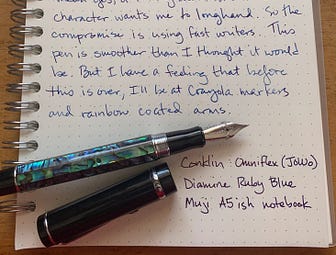 character wants me to longhand. So the
compromise is using fast writers. This
pen is smoother than I thought it would
be. But I have a feeling that before
this is over, I'll be at Crayola markers
and rainbow coated arms.
Conklin: Omniflex (JoWo)
Diamine Ruby Blue
Muji A5'ish notebook